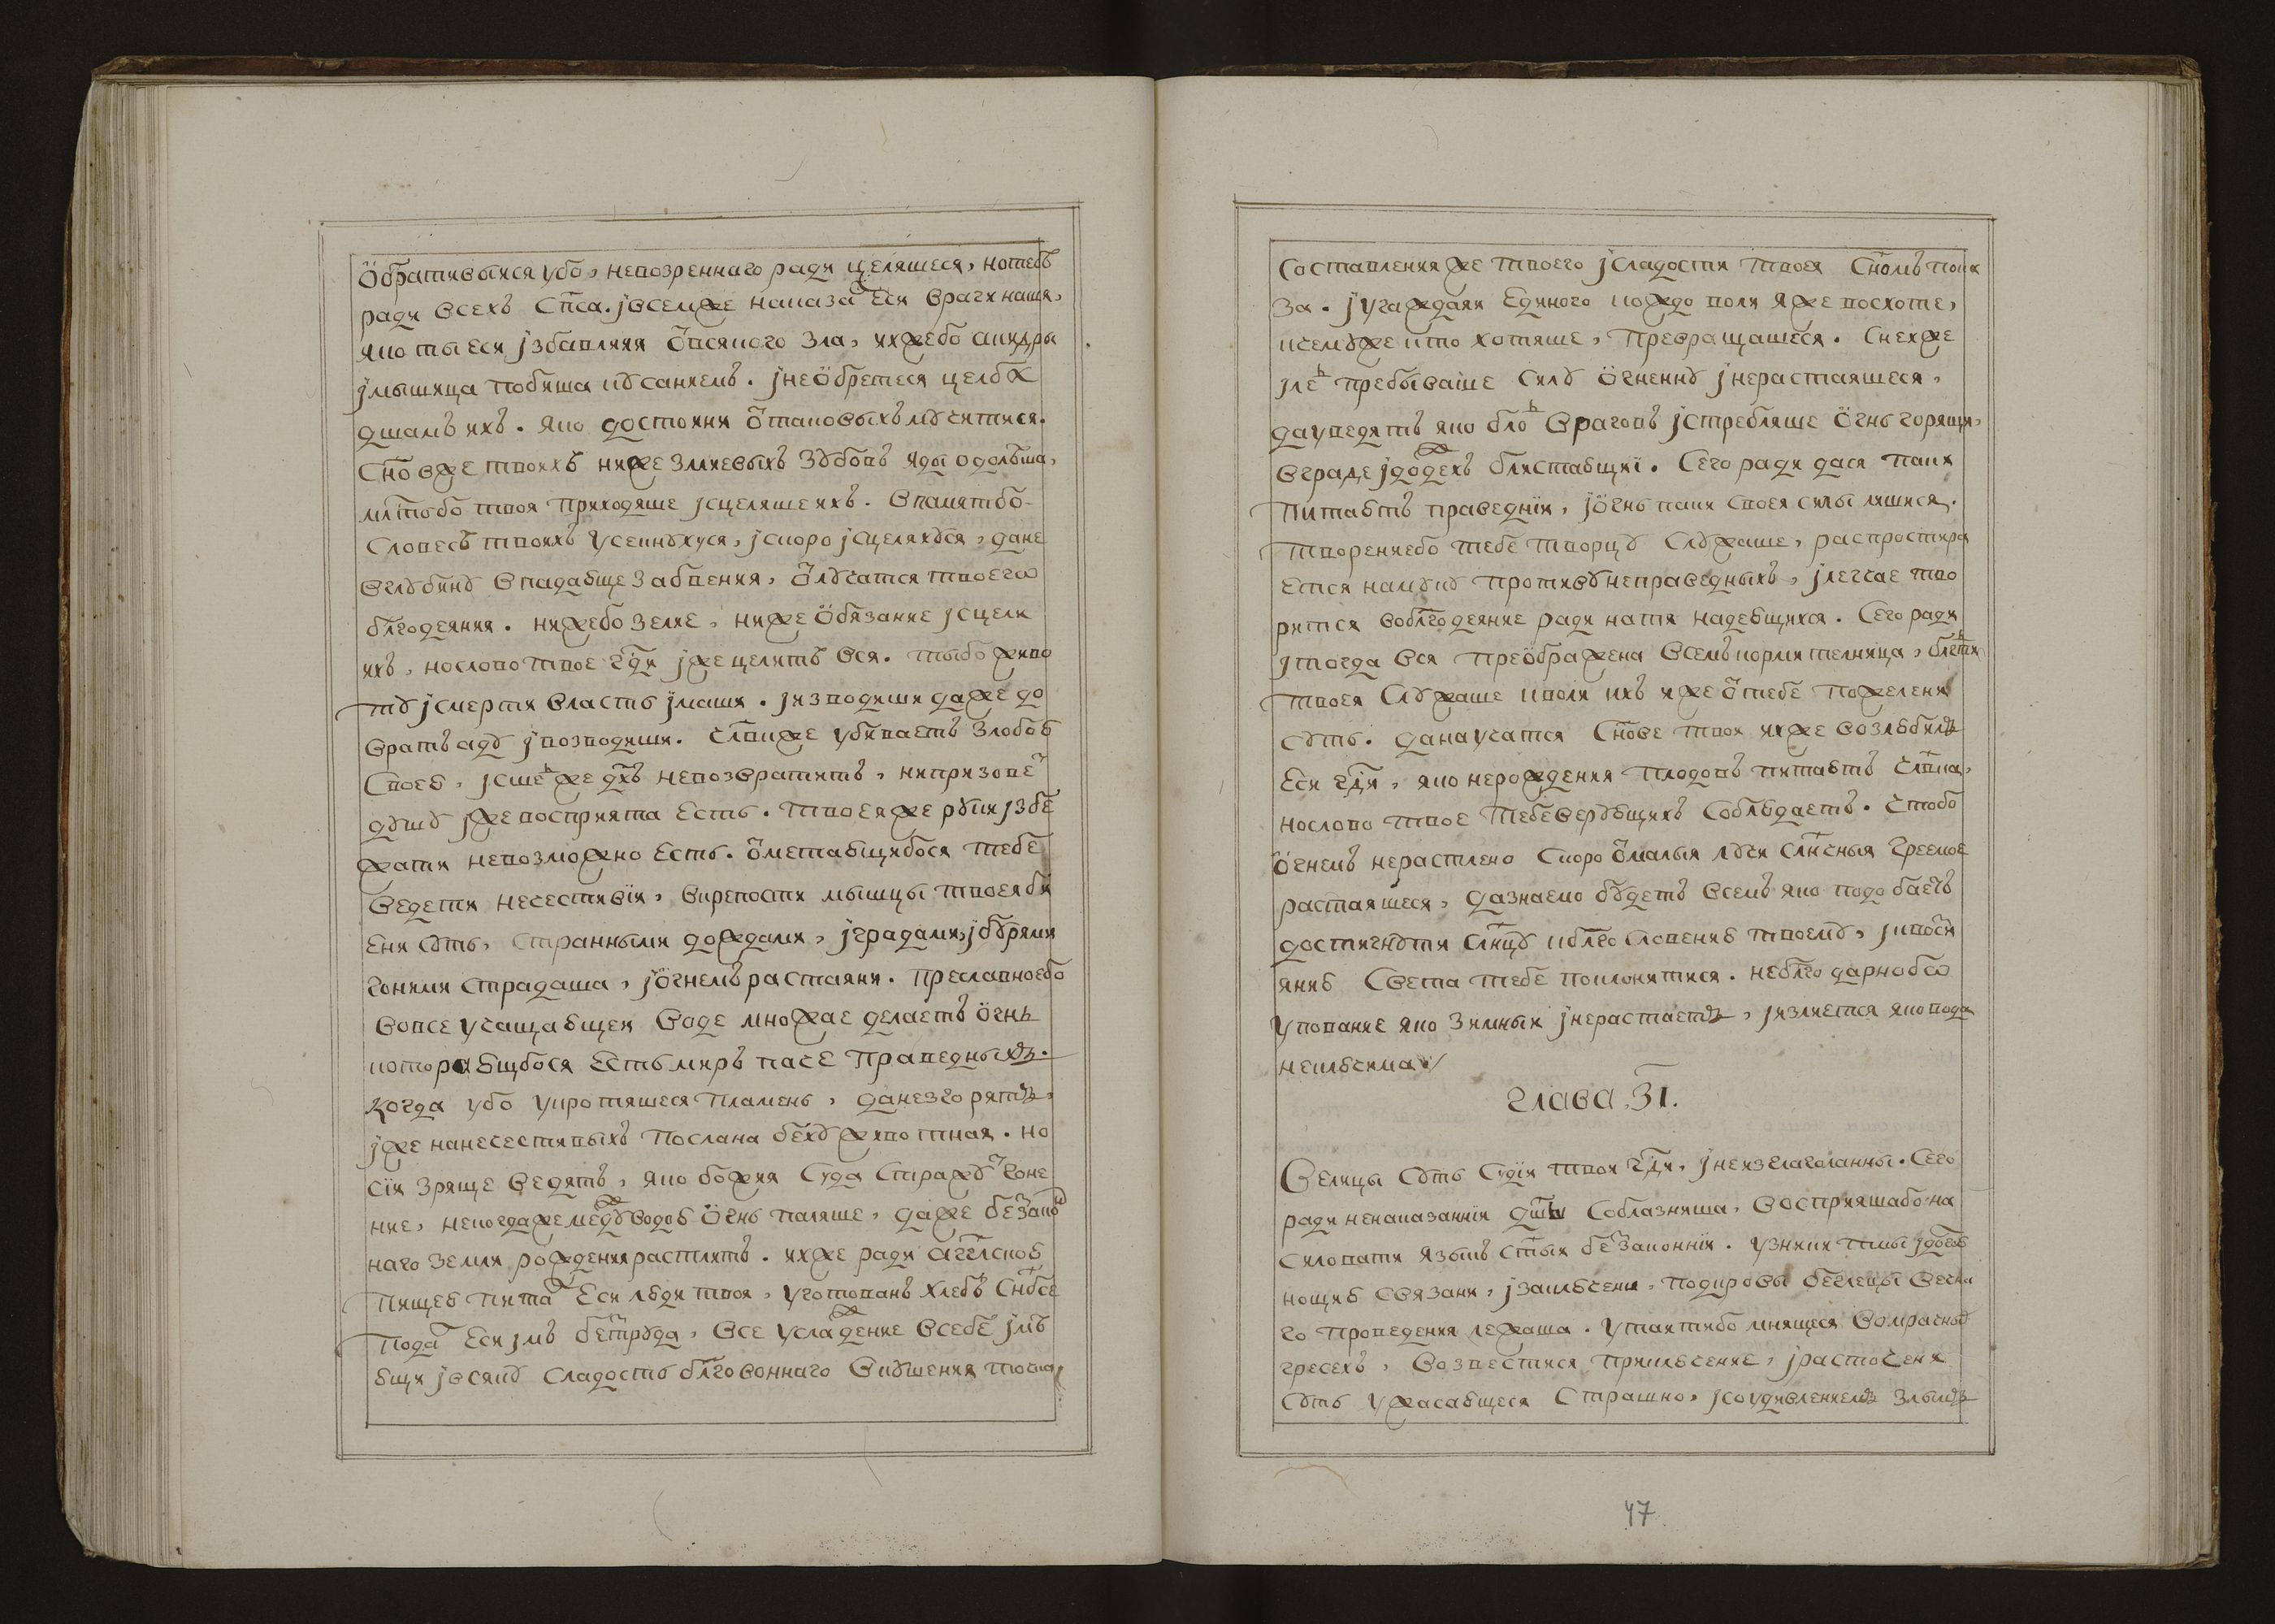 Ѻбративыися убо, невозреннаго ради целяшеся, нотебѣ
ради всехъ Сп҃са. jвсемже наказа Еси враги наша,
яко ты еси jзбавляяи Ѿвсякого зла, ихжебо акидры
jмышица побиша кꙋсаниемъ. jнеѺбретеся целба
дшамъ ихъ. яко достоини Ѿтаковыхъ мꙋчитися.
Сн҃овже твоихъ ниже змиевыхъ зꙋбовъ яды одолѣша,
мл҃тьбо твоя прихождаше jсцеляше ихъ. Впамятбо
словесъ твоихъ усекнꙋхуся, jскоро jсцеляхꙋся, дане
вглꙋбинꙋ впадающе забвения, Ѿлꙋчатся твоегѡ
бл҃годеяния. нижебо зелие, ниже Ѻбязание jсцели
ихъ, нослово твое гд҃и jже целитъ вся. тыбо живо
тꙋ jсмерти власть jмаши. jизводиши даже до
вратъ адꙋ jвозводиши. чл҃вкже убиваетъ злобою
своею, jсшедже дх҃ъ невозвратитъ, нипризове
дꙋшꙋ jже восприята есть. твоеяже рꙋки jзбе
жати невозможно есть. Ѿметающиибося тебе
ведети нечестивїи, вкрепости мышцы твоея би
ени сꙋть, странными дождами, jградами, jбꙋрями
гоними страдаша, jѺгнемъ растаяни. преславноебо
вовсе угащающеи воде множае делаетъ Ѻгнь
которающибося есть миръ паче праведныхъ.
когда убо укротяшеся пламень, данезгорятъ,
jже нанечестивыхъ послана бехꙋ животная. но
сiи зряще ведятъ, яко божия суда стражꙋ гоне
ние, некогдаже междꙋ водою Ѻгнь паляше, даже беззакон
наго земли рождения растлитъ. ихже ради аг҃глскою
пищею пита Еси люди твоя, уготованъ хлебъ снб҃се
пода Еси jмъ бестрꙋда, все услаждение всебе jмѣ
ющи jвсякꙋ сладость бл҃говоннаго вкꙋшения точна,
составленияже твоего jсладости твоея Сн҃омъ пока
за. jугаждаяи Единого кождо воли яже восхоте,
кчемꙋже кто хотяше, превращашеся. Снехже
jлед пребываше силꙋ Ѻгненнꙋ jнерастаяшеся,
дауведятъ яко бло враговъ jстребляше Ѻгнь горящи,
вграде jдождехъ блистающиї. Сего ради дася паки
питаютъ праведнїи, jѺгнь паки своея силы лишися.
творениебо тебе творцꙋ слꙋжаше, распростира
ется намꙋкꙋ противꙋ неправедныхъ, jлегчае тво
рится воблг҃одеяние ради натя надеющихся. Сего ради
jтогда вся преѺбражена всемъ кормителница, бл҃гти
твоея слꙋжаше кволи ихъ иже Ѿтебе пожелени
сꙋть. данаучатся Сн҃ове твои ихже возлюбилъ
Еси гд҃и, яко нерождения плодовъ питаютъ чл҃вка,
нослово твое тебеверꙋющихъ соблюдаетъ. Чтобо
Ѻгнемъ нерастлено скоро Ѿмалыя лꙋчи сл҃нчныя греемое
растаяшеся, дазнаемо бꙋдетъ всемъ яко подобаетъ
достигнꙋти сл҃нцꙋ кбл҃гословению твоемꙋ, jквоси
янию света тебе поклонитися. небл҃годарнобѡ
упование яко зимныи jнерастаетъ, jизлиется яко вода
неключима
глава. з҃i.
Велицы сꙋть сꙋдїи твои гд҃и, jнеизглаголанны. сего
ради ненаказаннїи дш҃ы соблазниша, восприяшабо на
силовати языкъ ст҃ыи беззаконнїи. узники тмы jдолгою
нощию связани, jзаключени, подкровы беглецы вечна
го проведения лежаша. утаитибо мнящеся вомрачнꙋ
гресехъ, возвестися приключение, jрасточени
сꙋть ужасающеся страшно, jсоудивлениемъ злымъ
47